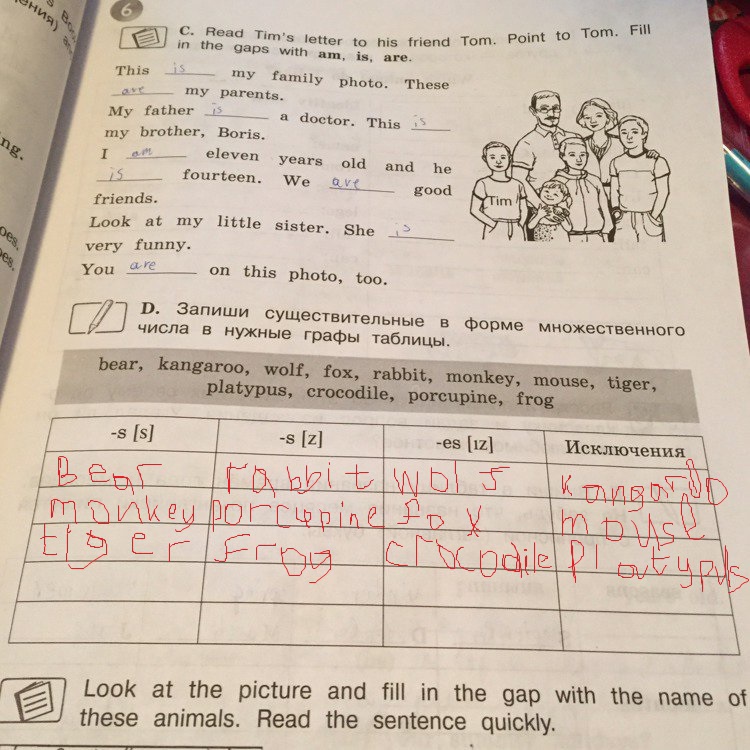 6
C. Read Tim's letter to his friend Tom. Point to Tom. Fill
in the gaps with am, is, are.
This is my family photo. These
are my parents.
My father is a doctor. This is
my brother, Boris.
I am eleven years old and he
is fourteen. We are good
friends.
Look at my little sister. She is
very funny.
You are on this photo, too.
Tim
D. Запиши существительные в форме множественного
числа в нужные графы таблицы.
bear, kangaroo, wolf, fox, rabbit, monkey, mouse, tiger,
platypus, crocodile, porcupine, frog
-s [s] -s [z] -es [ɪz] Исключения
Bear rabbit wolf kangaroo
monkey porcupine fox mouse
tiger frog crocodile platypus
Look at the picture and fill in the gap with the name of
these animals. Read the sentence quickly.
ng.
oes.
oes.